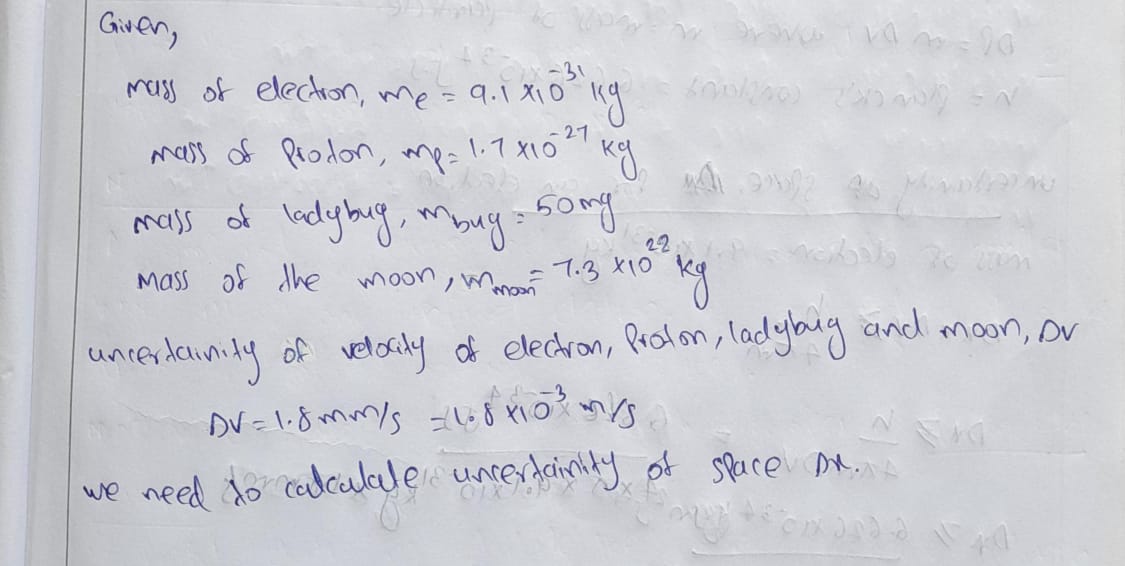 Given,
mass of electron, me = 9.1 x10^-31 kg
mass of Proton, mp = 1.7 x10^-27 kg
mass of ladybug, mbug = 50mg
Mass of the moon, mmoon = 7.3 x10^22 kg
uncertainity of velocity of electron, Proton, ladybug and moon, DV
DV = 1.8mm/s = 1.8 x10^-3 m/s
we need to calculate uncertainity of space Dx.